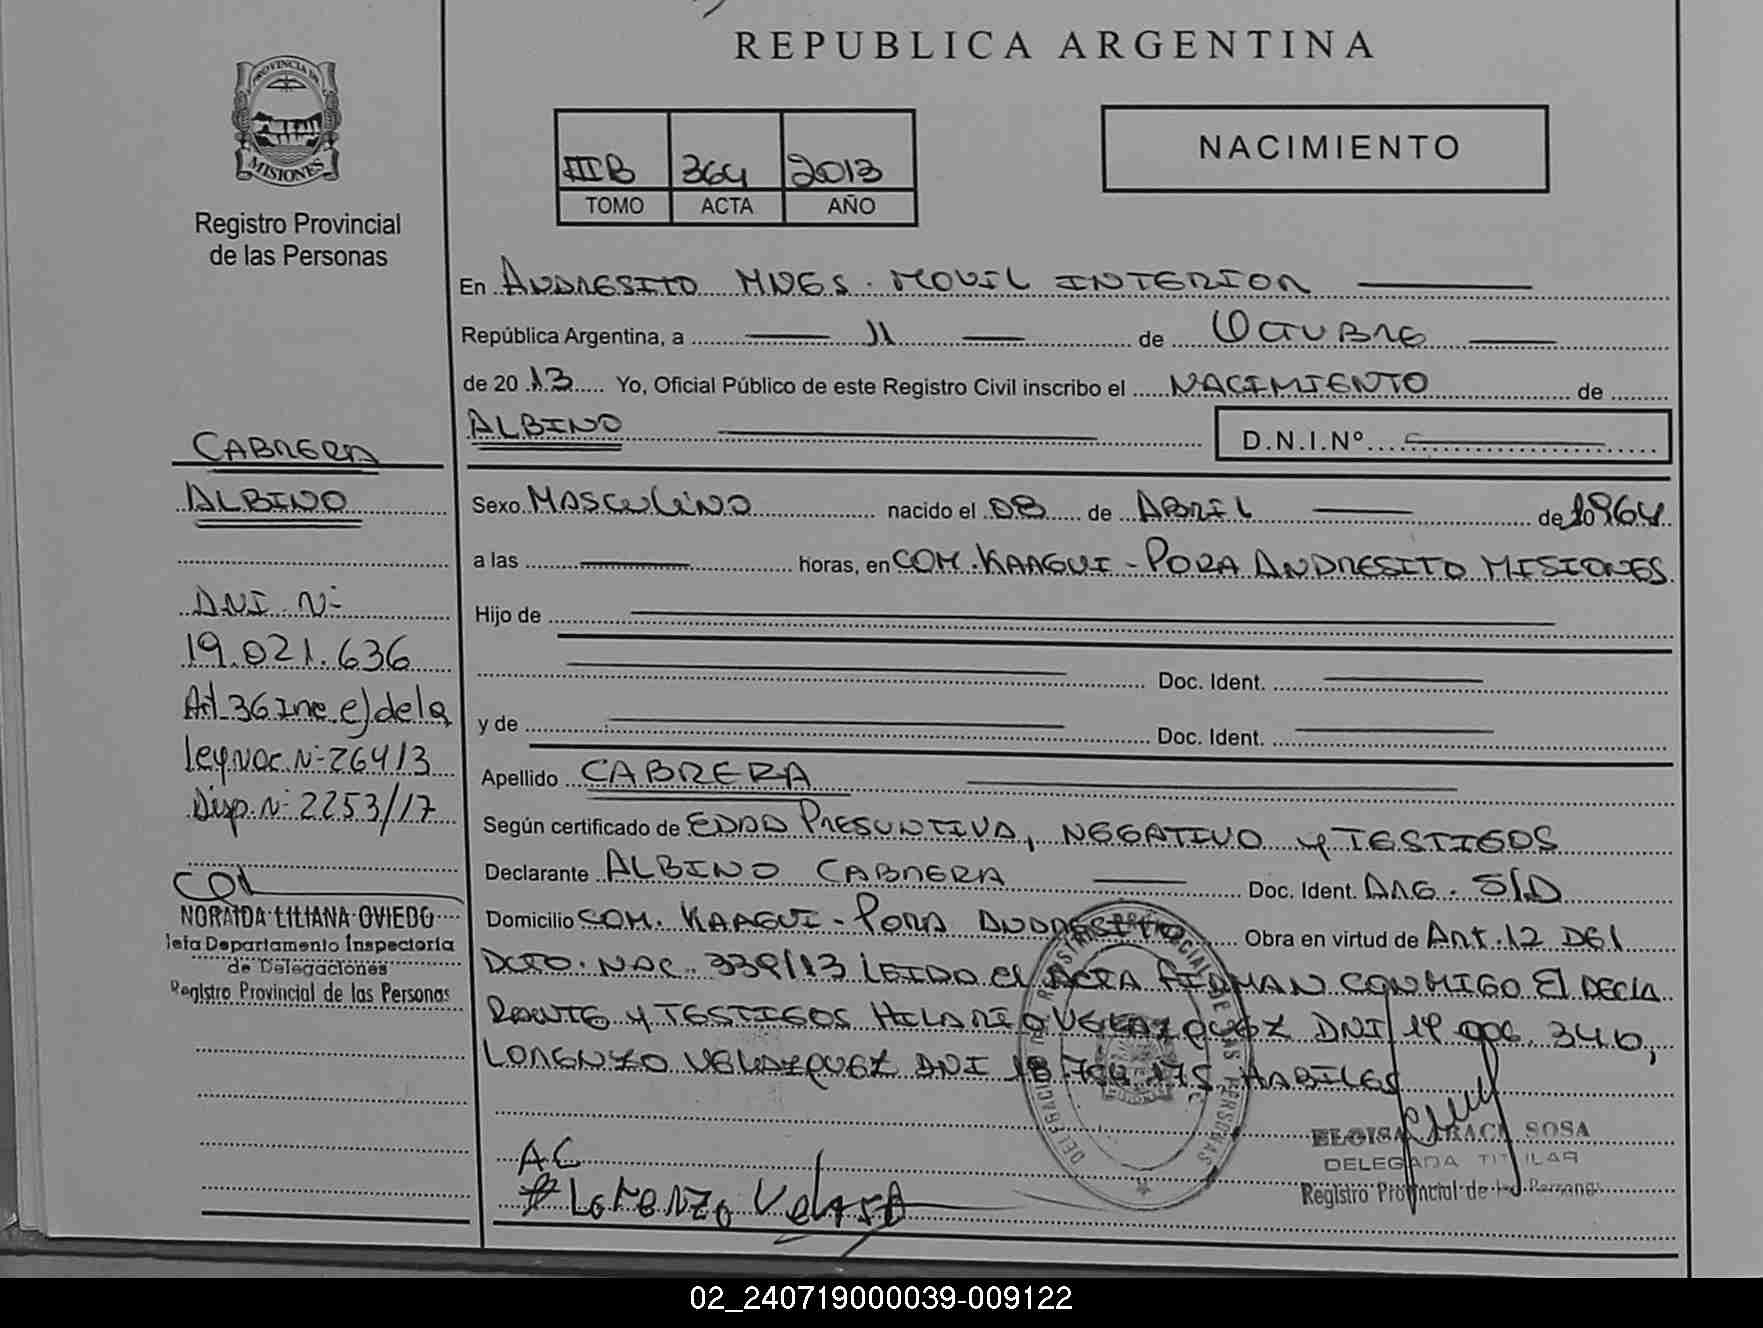 REPUBLICA ARGENTINA
PROVINCIA DE
MISIONES
Registro Provincial
de las Personas
IIIB 364 2013
TOMO ACTA AÑO
NACIMIENTO
En ANDRESITO MNES. MOVIL INTERIOR
República Argentina, a 11 de OCTUBRE
de 20 13 Yo, Oficial Público de este Registro Civil inscribo el NACIMIENTO de
ALBINO D.N.I.Nº
Sexo MASCULINO nacido el 08 de ABRIL de 1964
a las horas, en COM. KAAGUI - PORA ANDRESITO MISIONES
Hijo de
Doc. Ident.
y de Doc. Ident.
Apellido CABRERA
Según certificado de EDAD PRESUNTIVA, NEGATIVO y TESTIGOS
Declarante ALBINO CABRERA Doc. Ident. ARG. S/D
Domicilio COM. KAAGUI - PORA ANDRESITO Obra en virtud de ART. 12 DEL
DCTO. NAC. 339/13 LEIDA EL ACTA FIRMAN CONMIGO EL DECLA
RANTE y TESTIGOS HILARIO VELAZQUEZ DNI 340,
LORENZO VELAZQUEZ DNI 18 175 HABILES
AC
LORENZO
ELOISA SOSA
DELEGADA TITULAR
Registro Provincial de las Personas
CABRERA
ALBINO
DNI Nº
19.021.636
Art 36 Inc e) de la
Ley Nac. Nº 26413
Disp. Nº 2253/17
NORAIDA LILIANA OVIEDO
Jefa Departamento Inspectoria
de Delegaciones
Registro Provincial de las Personas
02_240719000039-009122